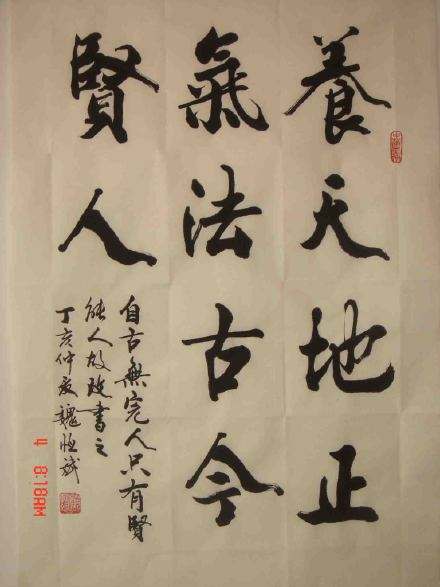 養天地正
氣法古今
賢人
自古無完人只有賢
能人故改書之
丁亥仲夏魏恒斌
4 8:18AM